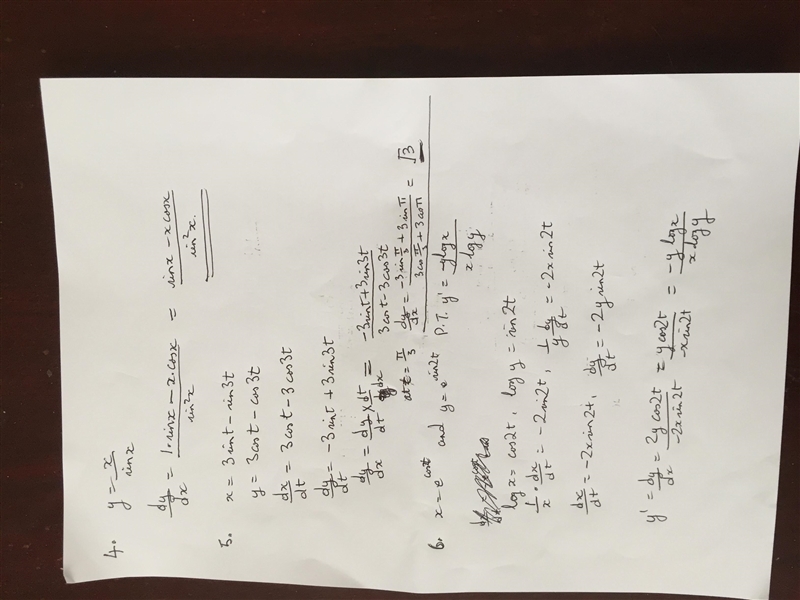 4. y = x/sinx
dy/dx = 1·sinx − x·cosx / sin²x = sinx − xcosx / sin²x.
5. x = 3sint − sin3t
y = 3cost − cos3t
dx/dt = 3cost − 3cos3t
dy/dt = −3sint + 3sin3t
dy/dx = dy/dt × dt/dx = −3sint + 3sin3t / 3cost − 3cos3t
at t = π/3 dy/dx = −3sin π/3 + 3sinπ / 3cos π/3 + 3cosπ = √3
6. x = e^cos2t and y = e^sin2t P.T. y' = −ylogx / xlogy
logx = cos2t, logy = sin2t
1/x · dx/dt = −2sin2t, 1/y dy/dt = −2xsin2t
dx/dt = −2xsin2t, dy/dt = −2ysin2t
y' = dy/dx = 2ycos2t / −2xsin2t = ycos2t / −xsin2t = −ylogx / xlogy